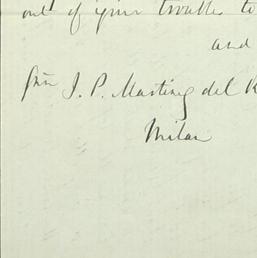 out of your trouble to
and
J. P. Martinez del R
Milan